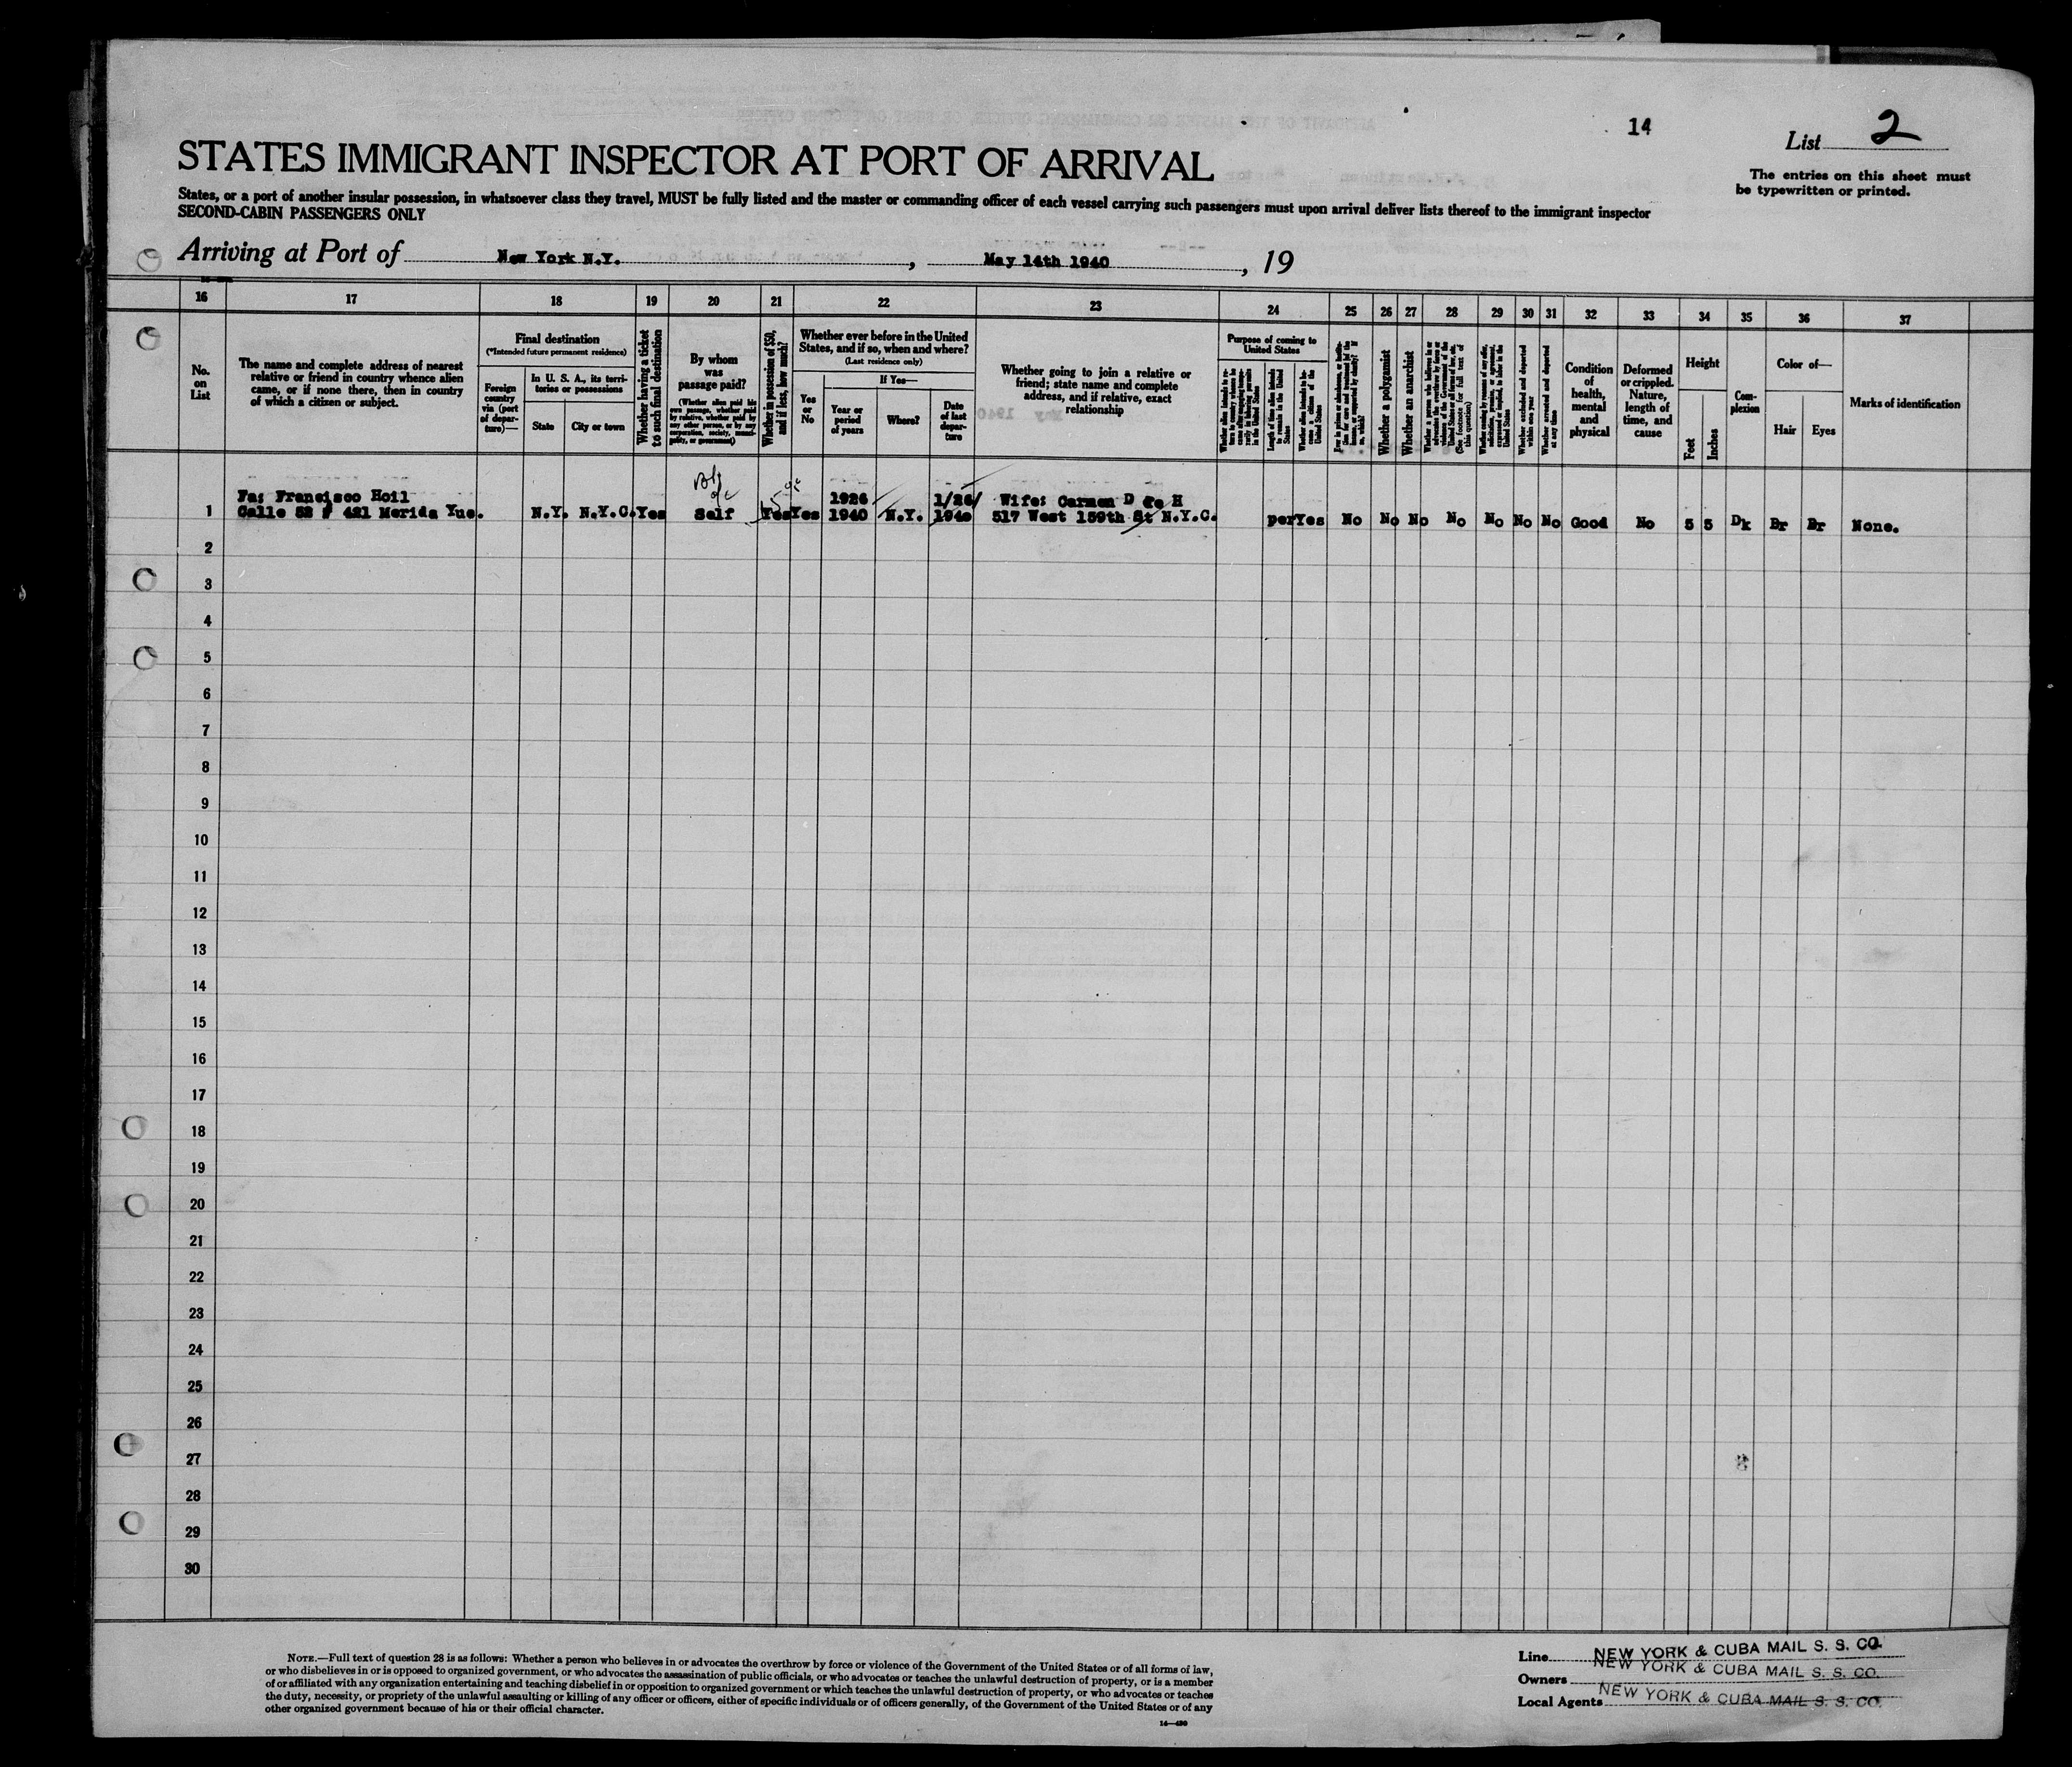 14
List 2
STATES IMMIGRANT INSPECTOR AT PORT OF ARRIVAL
The entries on this sheet must
be typewritten or printed.
States, or a port of another insular possession, in whatsoever class they travel, MUST be fully listed and the master or commanding officer of each vessel carrying such passengers must upon arrival deliver lists thereof to the immigrant inspector
SECOND-CABIN PASSENGERS ONLY
Arriving at Port of New York N.Y. , May 14th 1940 , 19
16 17 18 19 20 21 22 23 24 25 26 27 28 29 30 31 32 33 34 35 36 37
No.
on
List
The name and complete address of nearest
relative or friend in country whence alien
came, or if none there, then in country
of which a citizen or subject.
Final destination
(*Intended future permanent residence)
Foreign
country
via (port
of depar-
ture)—
In U. S. A., its terri-
tories or possessions
State
City or town
Whether having a ticket
to such final destination
By whom
was
passage paid?
(Whether alien paid his
own passage, whether paid
by relative, whether paid by
any other person, or by any
corporation, society, munici-
pality, or government)
Whether in possession of $50,
and if less, how much?
Whether ever before in the United
States, and if so, when and where?
(Last residence only)
Yes
or
No
If Yes—
Year or
period
of years
Where?
Date
of last
depar-
ture
Whether going to join a relative or
friend; state name and complete
address, and if relative, exact
relationship
Purpose of coming to
United States
Length of time alien intends
to remain in the United
States
Whether alien intends to be-
come a citizen of the
United States
Whether a polygamist
Whether an anarchist
(See footnote for full text of
this question)
Whether excluded and deported
within one year
Whether arrested and deported
at any time
Condition
of
health,
mental
and
physical
Deformed
or crippled.
Nature,
length of
time, and
cause
Height
Feet
Inches
Com-
plexion
Color of—
Hair
Eyes
Marks of identification
Fa: Francisco Hoil 1926 1/26/ Wife: Carmen D de H
1 Calle 52 # 421 Merida Yuc. N.Y. N.Y.C. Yes Self Yes Yes 1940 N.Y. 1940 517 West 159th St N.Y.C. per Yes No No No No No No No Good No 5 5 Dk Br Br None.
2
3
4
5
6
7
8
9
10
11
12
13
14
15
16
17
18
19
20
21
22
23
24
25
26
27
28
29
30
NOTE.—Full text of question 28 is as follows: Whether a person who believes in or advocates the overthrow by force or violence of the Government of the United States or of all forms of law,
or who disbelieves in or is opposed to organized government, or who advocates the assassination of public officials, or who advocates or teaches the unlawful destruction of property, or is a member
of or affiliated with any organization entertaining and teaching disbelief in or opposition to organized government or which teaches the unlawful destruction of property, or who advocates or teaches
the duty, necessity, or propriety of the unlawful assaulting or killing of any officer or officers, either of specific individuals or of officers generally, of the Government of the United States or of any
other organized government because of his or their official character.
14—430
Line NEW YORK & CUBA MAIL S. S. CO.
Owners NEW YORK & CUBA MAIL S. S. CO.
Local Agents NEW YORK & CUBA MAIL S. S. CO.